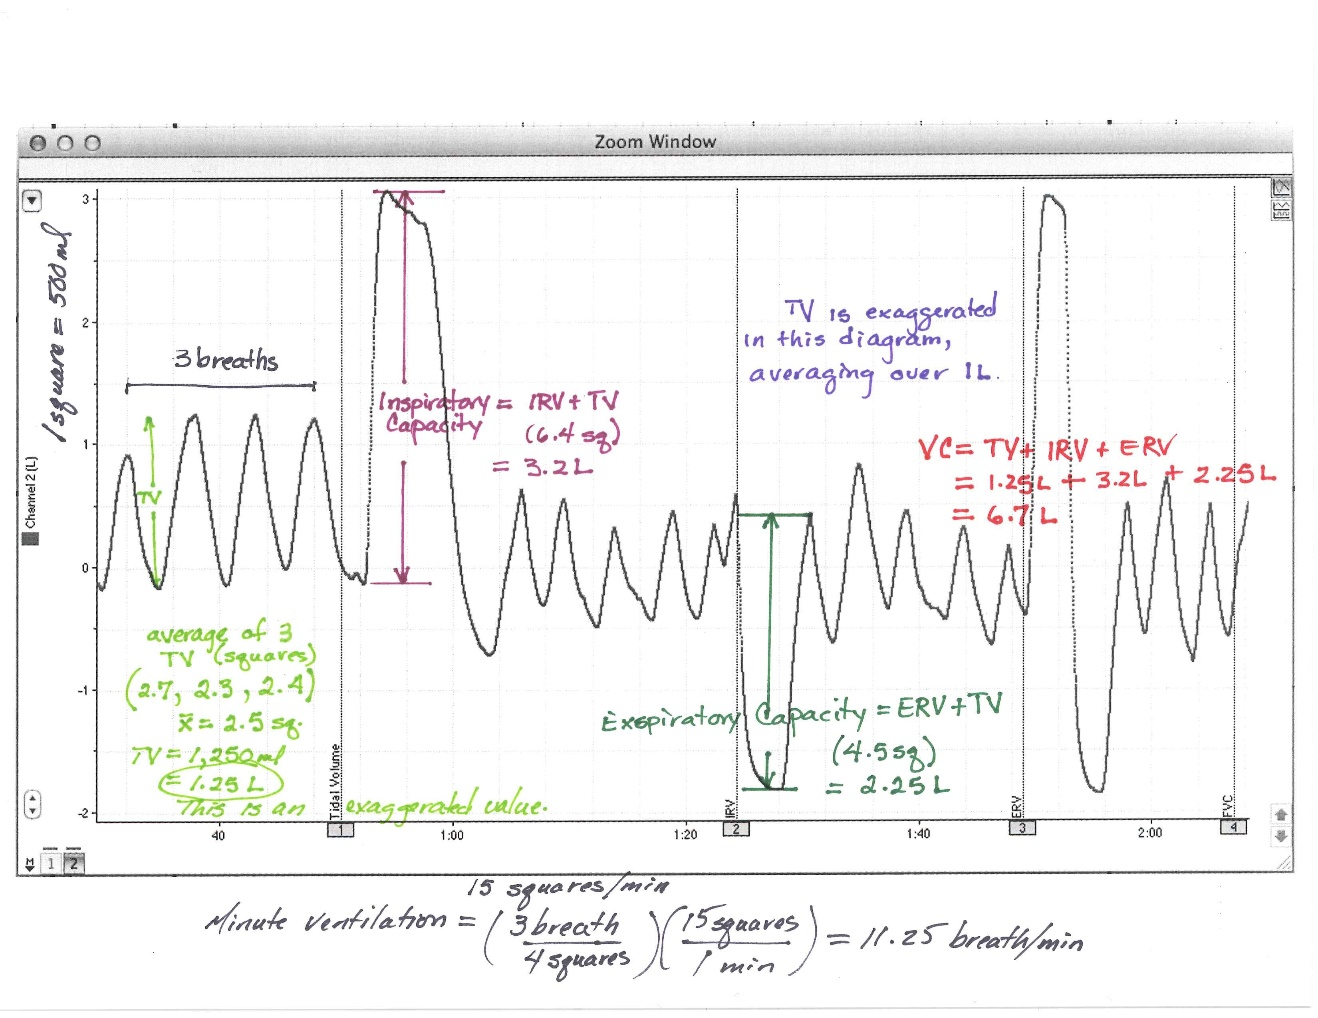 Zoom Window
3
2
1
0
-1
-2
Channel 2 (L)
1 square = 500 ml
3 breaths
TV
Inspiratory = IRV + TV
Capacity (6.4 sq)
= 3.2 L
TV is exaggerated
in this diagram,
averaging over 1L.
VC = TV + IRV + ERV
= 1.25L + 3.2L + 2.25L
= 6.7 L
average of 3
TV (squares)
(2.7, 2.3, 2.4)
x̄ = 2.5 sq.
TV = 1,250 ml
= 1.25 L
This is an exaggerated value.
Exspiratory Capacity = ERV + TV
(4.5 sq)
= 2.25 L
Tidal Volume
IRV
ERV
FVC
1
2
3
4
40
1:00
1:20
1:40
2:00
M
1
2
15 squares/min
Minute ventilation = (3 breath / 4 squares)(15 squares / 1 min) = 11.25 breath/min